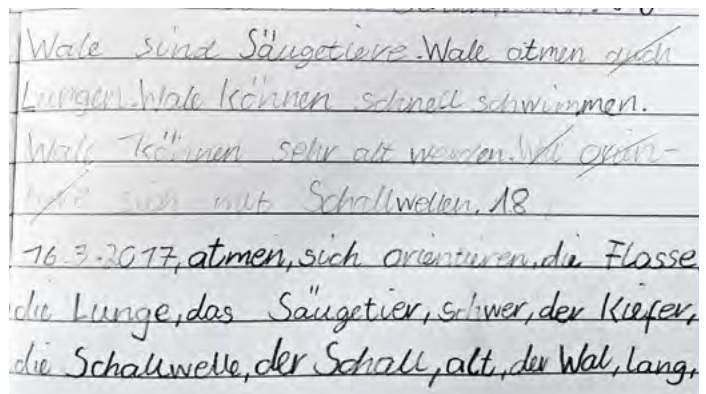 Wale sind Säugetiere. Wale atmen auch
Lungen. Wale können schnell schwimmen.
Wale können sehr alt werden. Wal orien-
sich mit Schallwellen. 18
16.3.2017, atmen, sich orientieren, die Flosse
die Lunge, das Säugetier, schwer, der Kiefer,
die Schallwelle, der Schall, alt, der Wal, lang,